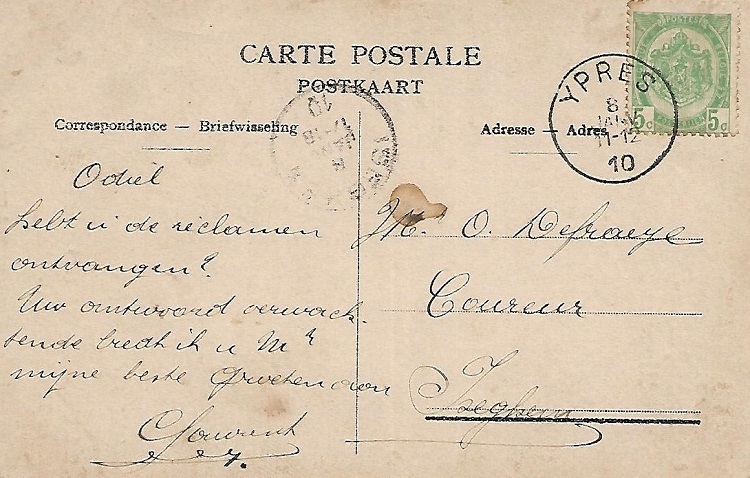 CARTE POSTALE
POSTKAART
Correspondance — Briefwisseling
Adresse — Adres
POSTES
5c 5c
YPRES
8
JANV
11-12
10
10
Odiel
hebt u de reclamen
ontvangen?
Uw antwoord verwach-
tende biedt ik u Mr
mijne beste Groeten aan
Mr. O. Defraeye
Coureur
Iseghem